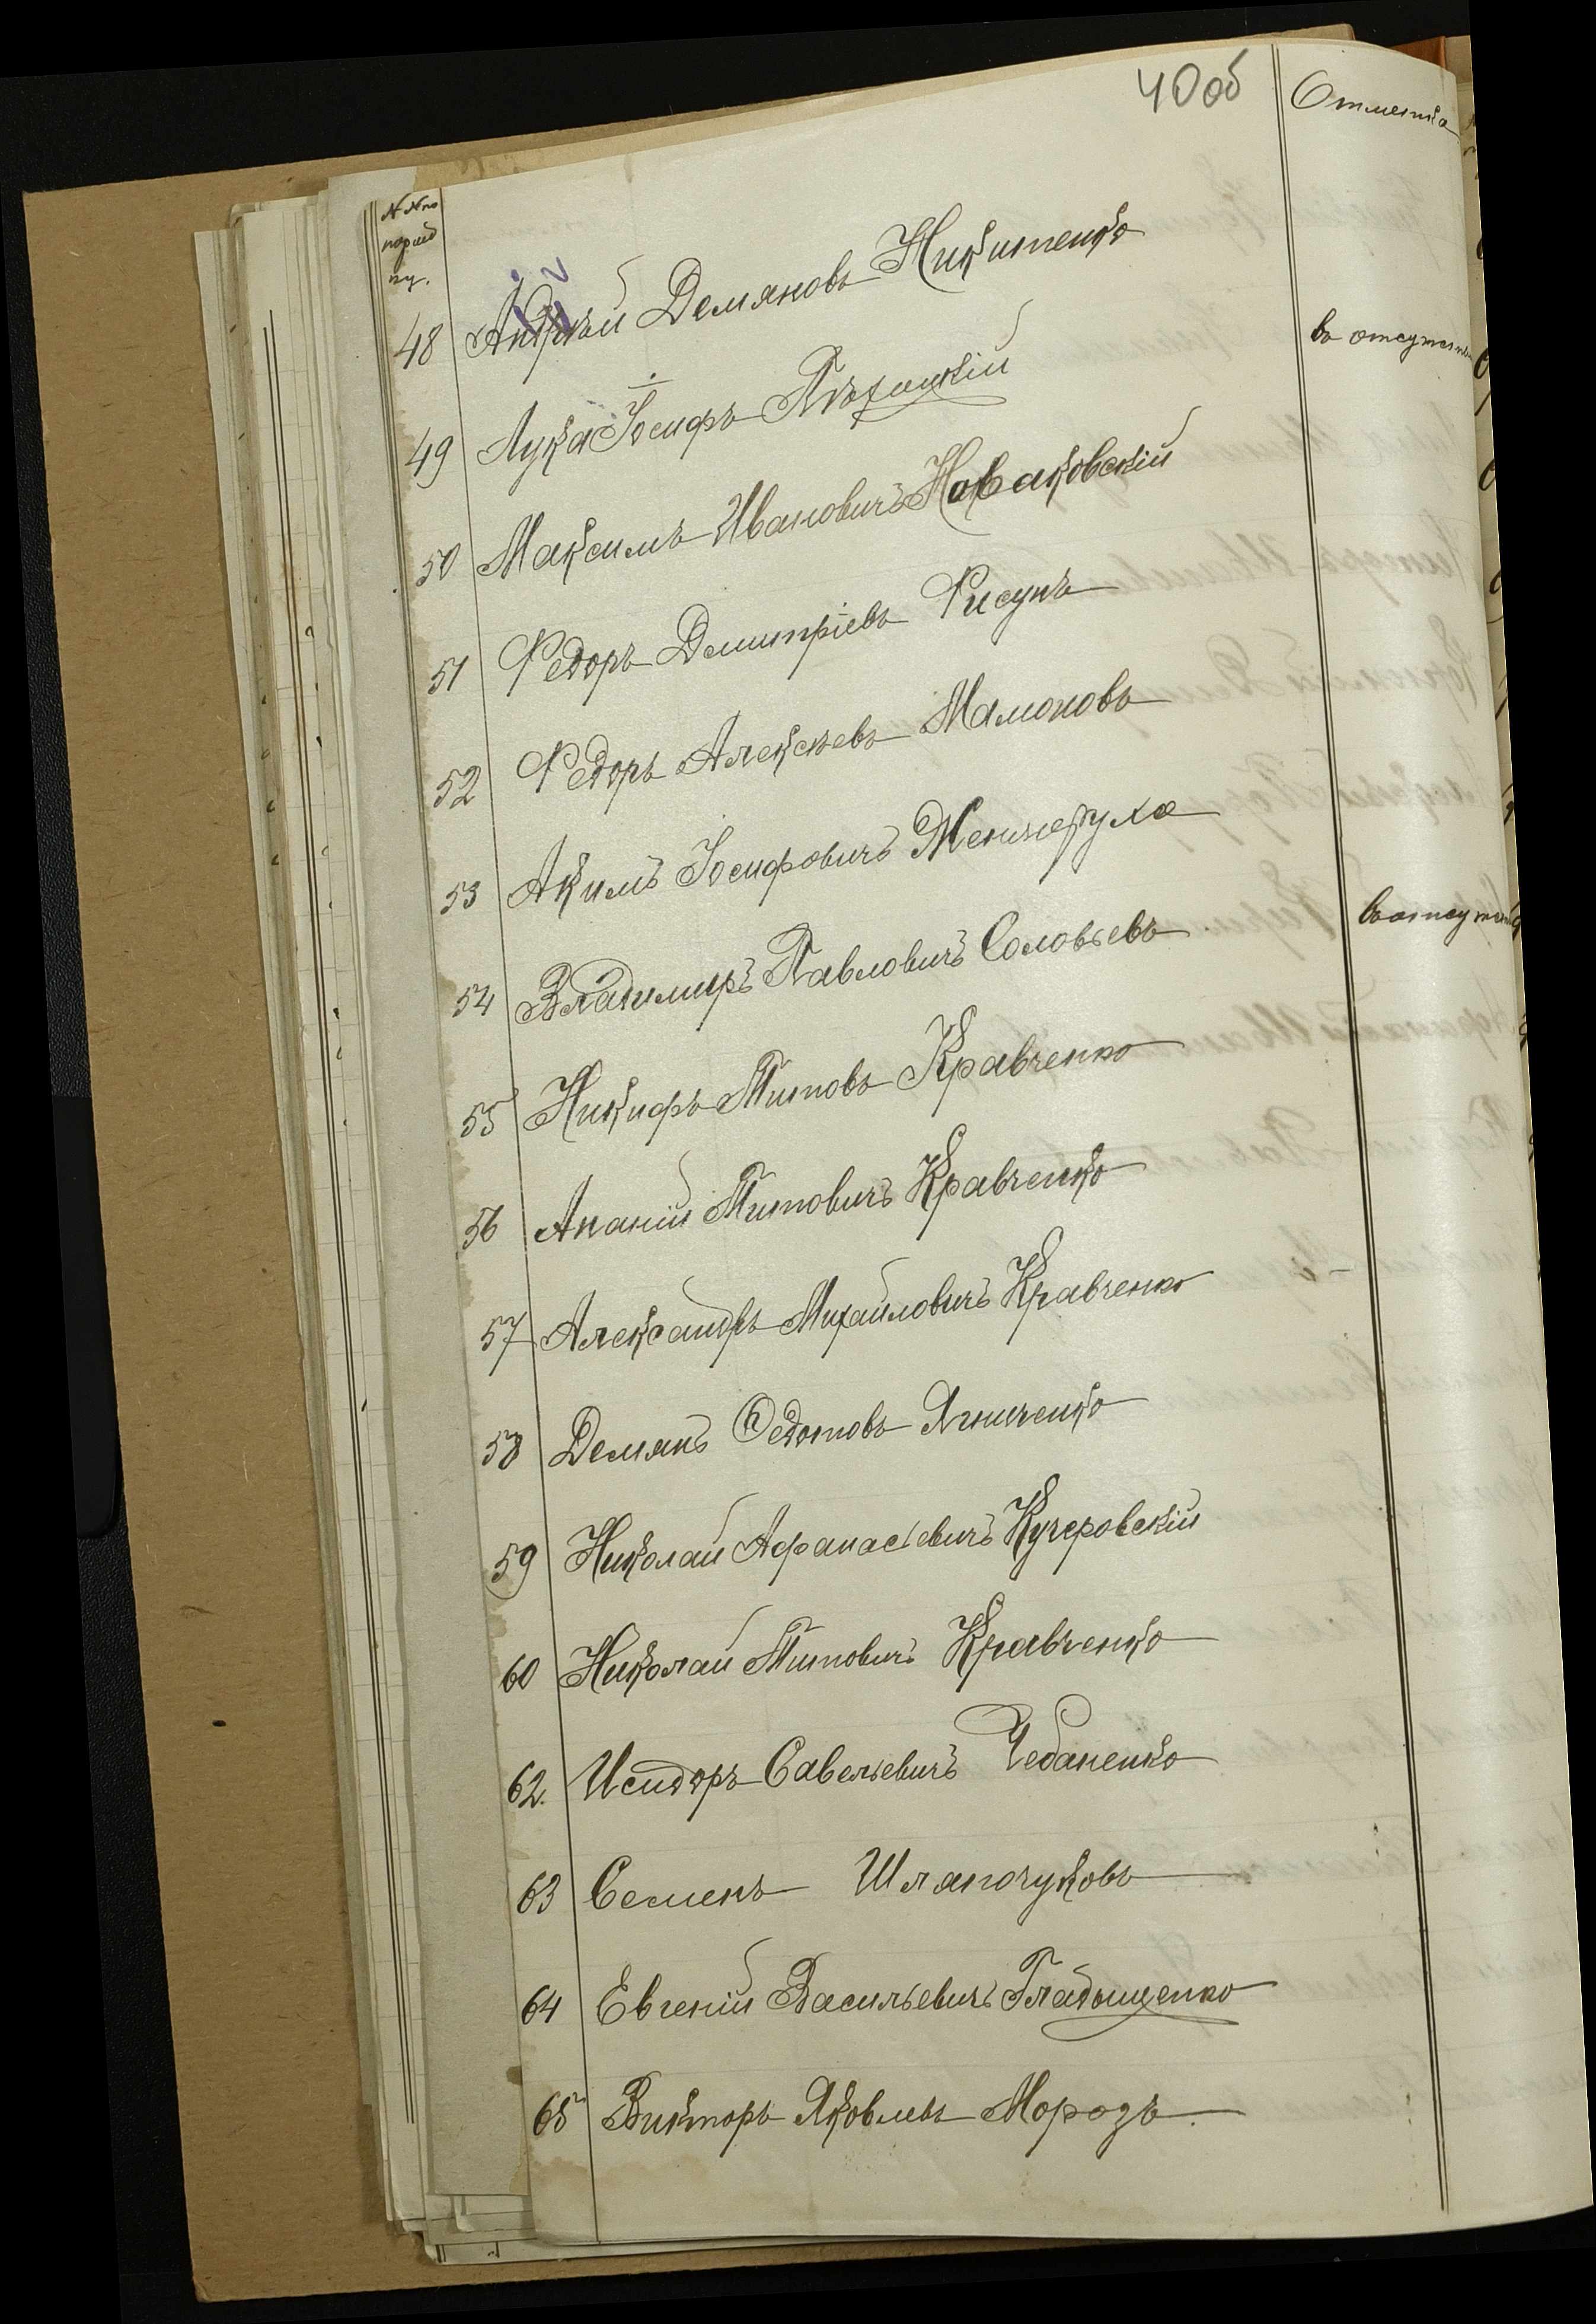 40 об
Отметка
№№ по
поряд
ку.
48 Андрѣй Демяновъ Никитенко
49 Лука Іосифъ Пѣхоцкій въ отсутстви
50 Максимъ Ивановичъ Новаковскій
51 Федоръ Димитріевъ Рисунъ
52 Федоръ Алексѣевъ Мамоновъ
53 Акимъ Іосифовичъ Женжеруха
54 Владимиръ Павловичъ Соловьевъ въ отсутстви
55 Никифръ Титовъ Кравченко
56 Ананій Титовичъ Кравченко
57 Александръ Михайловичъ Кравченко
58 Демянъ Федотовъ Ягниченко
59 Николай Афанасіевичъ Кучеровскій
60 Николай Титовичъ Кравченко
62. Исидоръ Савельевичъ Чебаненко
63 Семенъ Шляпочуковъ
64 Евгеній Васильевичъ Гладыщенко
65 Викторъ Яковлевъ Морозъ